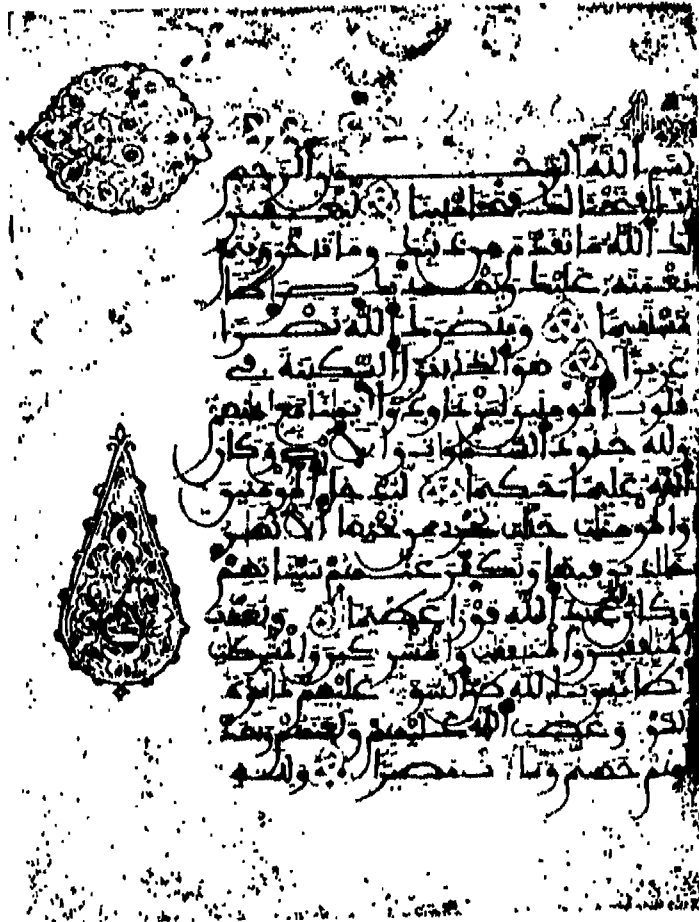 بسم الله الرحمن الرحيم
إنا فتحنا لك فتحا مبينا ليغفر
لك الله ما تقدم من ذنبك وما تأخر ويتم
نعمته عليك ويهديك صراطا
مستقيما وينصرك الله نصرا
عزيزا هو الذي أنزل السكينة في
قلوب المؤمنين ليزدادوا إيمانا مع إيمنهم
ولله جنود السموات والأرض وكان
الله عليما حكيما ليدخل المؤمنين
والمؤمنت جنت تجري من تحتها الأنهر
خلدين فيها ويكفر عنهم سيئاتهم
وكان ذلك عند الله فوزا عظيما ويعذب
المنفقين والمنفقت والمشركين والمشركت
الظانين بالله ظن السوء عليهم دائرة
السوء وغضب الله عليهم ولعنهم وأعد لهم
جهنم وساءت مصيرا ولله